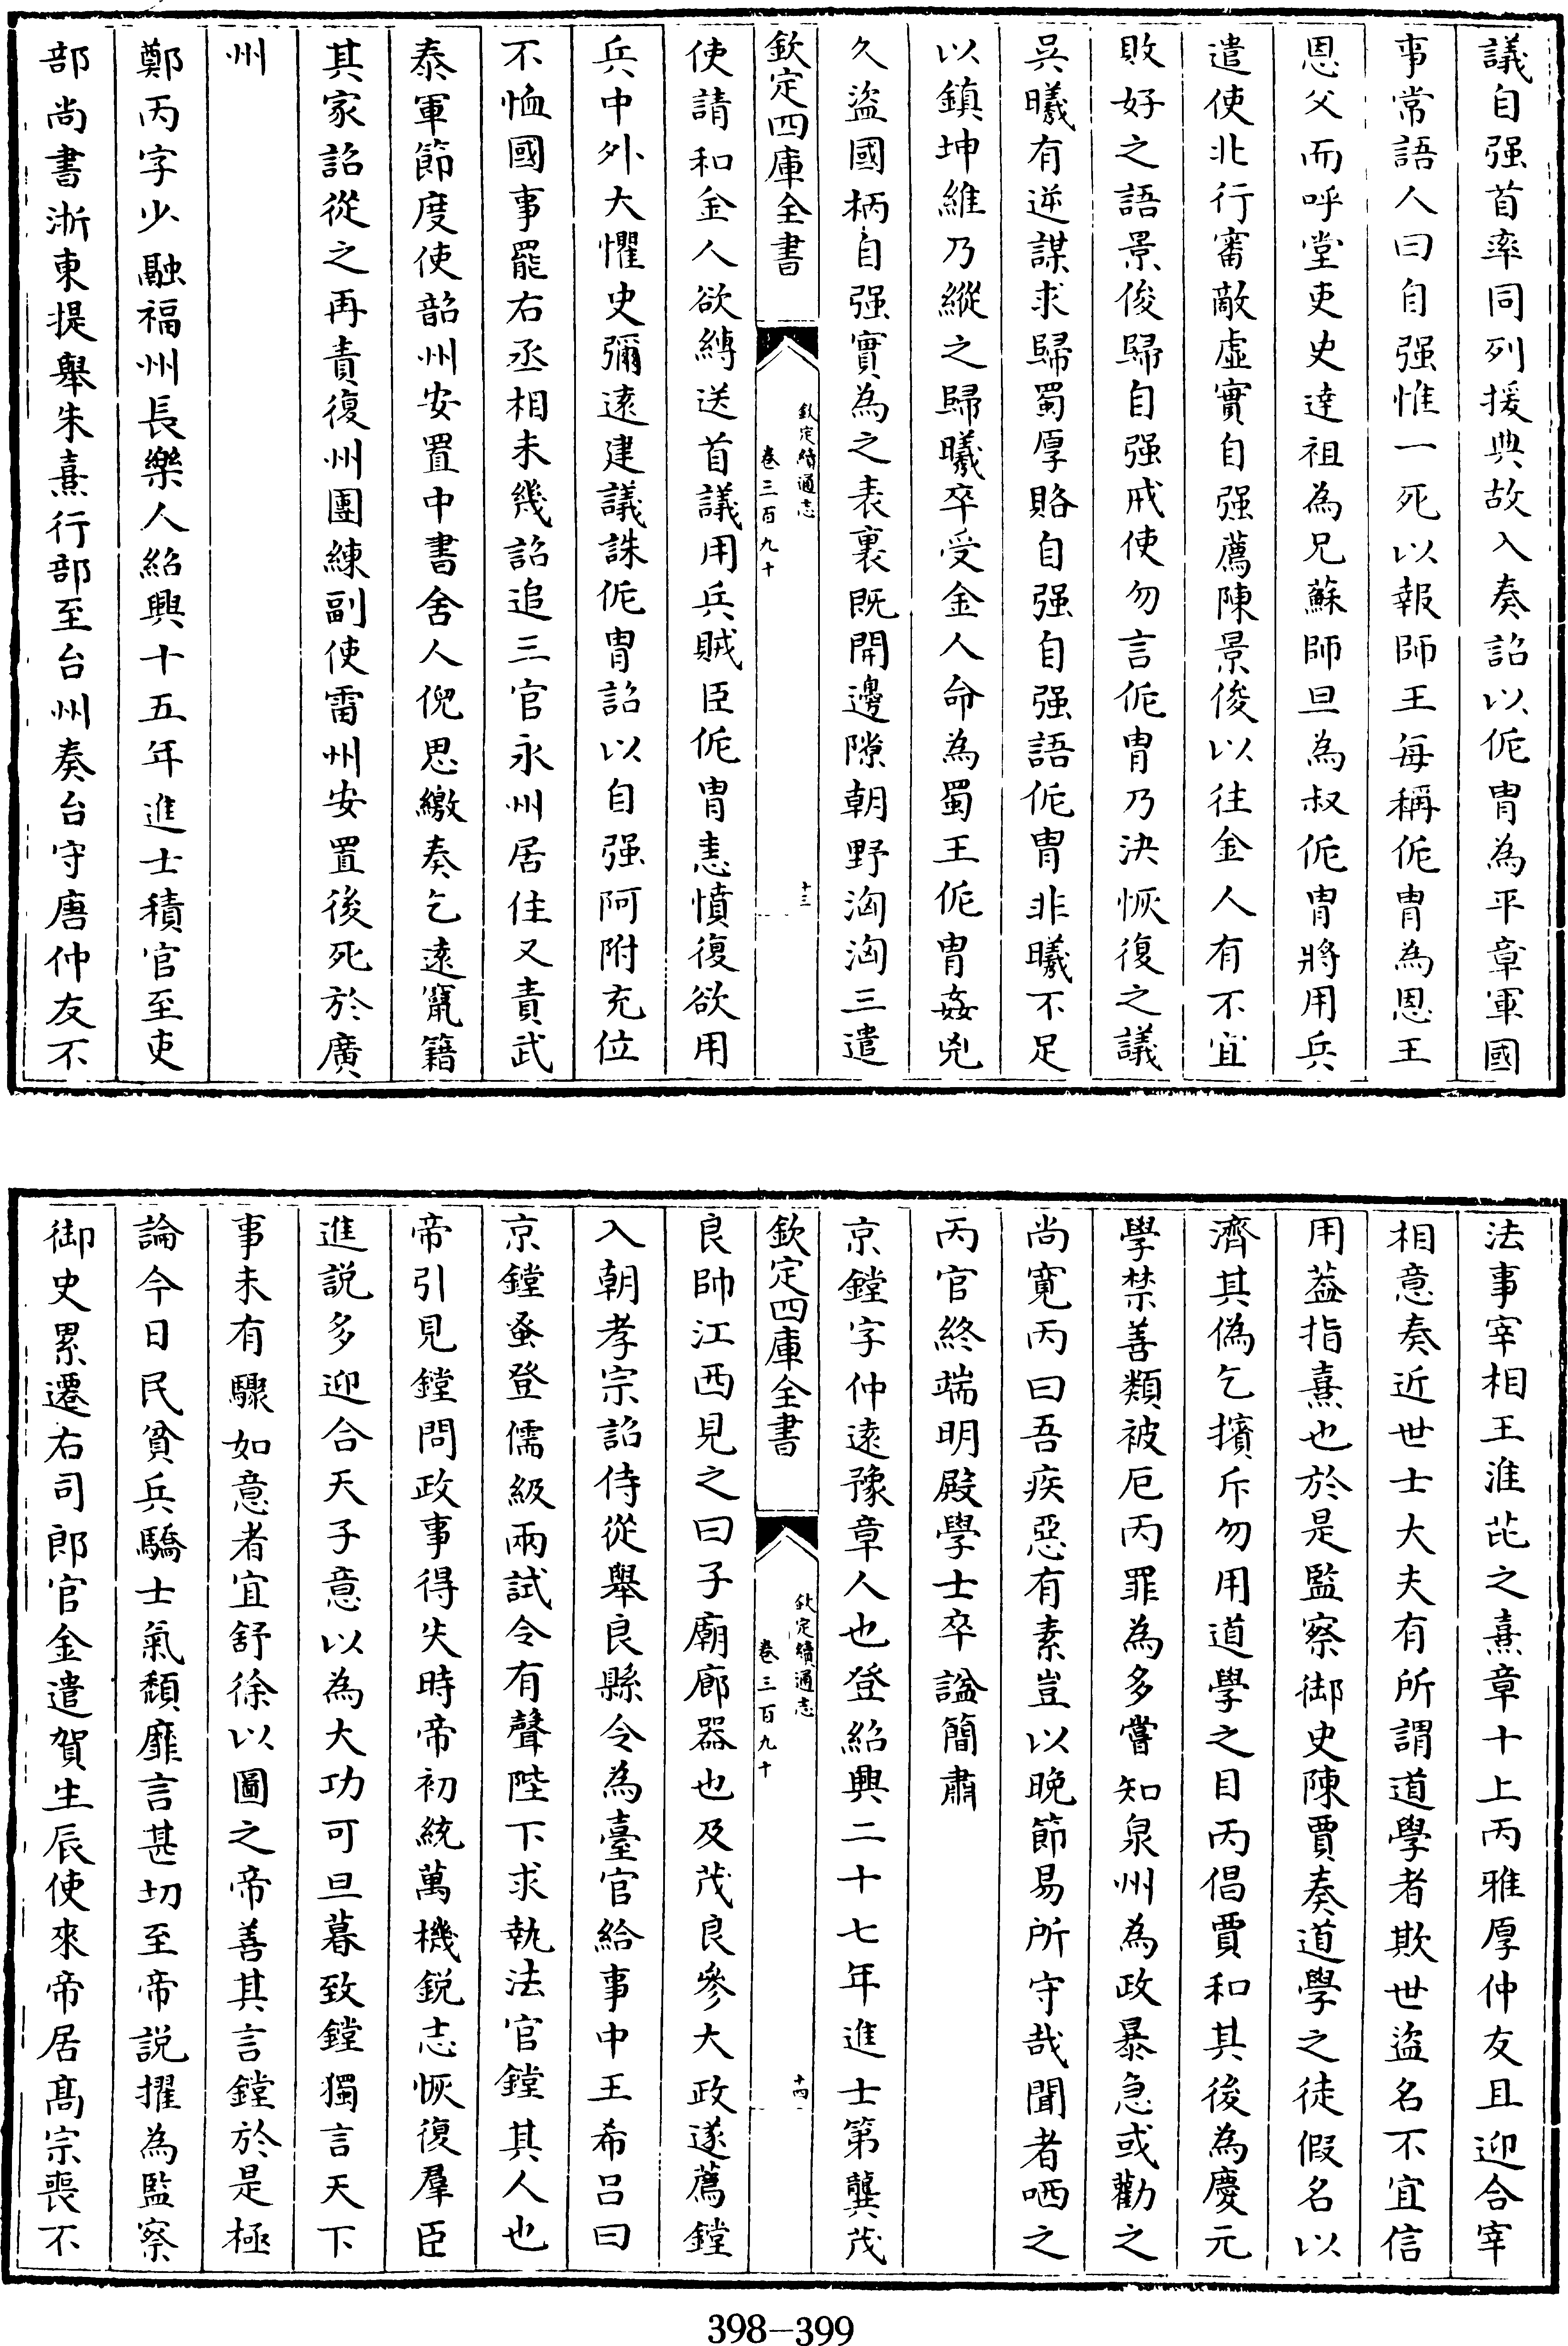 議自强首率同列援典故入奏詔以侂胄為平章軍國
事常語人曰自强惟一死以報師王每稱侂胄為恩王
恩父而呼堂吏史逹祖為兄蘇師旦為叔侂胄將用兵
遣使北行審敵虛實自强薦陳景俊以往金人有不宜
敗好之語景俊歸自强戒使勿言侂胄乃決恢復之議
吳曦有逆謀求歸蜀厚賂自强自强語侂胄非曦不足
以鎮坤維乃縱之歸曦卒受金人命為蜀王侂胄姦兇
久盜國柄自强實為之表裏既開邊隙朝野洶洶三遣
欽定四庫全書
欽定續通志
卷三百九十
十三
使請和金人欲縛送首議用兵賊臣侂胄恚憤復欲用
兵中外大懼史彌遠建議誅侂胄詔以自强阿附充位
不恤國事罷右丞相未幾詔追三官永州居住又責武
泰軍節度使韶州安置中書舍人倪思繳奏乞遠竄籍
其家詔從之再責復州團練副使雷州安置後死於廣
州
鄭丙字少融福州長樂人紹興十五年進士積官至吏
部尚書浙東提舉朱熹行部至台州奏台守唐仲友不
法事宰相王淮芘之熹章十上丙雅厚仲友且迎合宰
相意奏近世士大夫有所謂道學者欺世盜名不宜信
用葢指熹也於是監察御史陳賈奏道學之徒假名以
濟其偽乞擯斥勿用道學之目丙倡賈和其後為慶元
學禁善類被厄丙罪為多嘗知泉州為政暴急或勸之
尚寬丙曰吾疾惡有素豈以晩節易所守哉聞者哂之
丙官終端明殿學士卒諡簡肅
京鏜字仲遠豫章人也登紹興二十七年進士第龔茂
欽定四庫全書
欽定續通志
卷三百九十
十四
良帥江西見之曰子廟廊器也及茂良參大政遂薦鏜
入朝孝宗詔侍從舉良縣令為臺官給事中王希呂曰
京鏜蚤登儒級兩試令有聲陛下求執法官鏜其人也
帝引見鏜問政事得失時帝初統萬機鋭志恢復羣臣
進說多迎合天子意以為大功可旦暮致鏜獨言天下
事未有驟如意者宜舒徐以圖之帝善其言鏜於是極
論今日民貧兵驕士氣頽靡言甚切至帝說擢為監察
御史累遷右司郎官金遣賀生辰使來帝居髙宗喪不
398-399